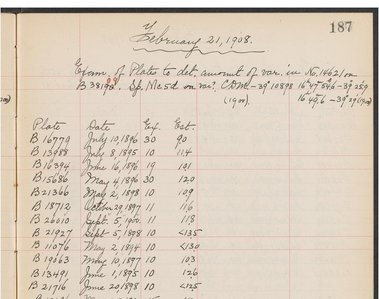 187
February 21, 1908.
Exam. of Plates to det. amount of var. in No. 14621 on
B 38192. Sp. Me5d on var? C.D.M. -39° 10898 16h 47m 54.6 -39° 25.9
(1900) 16 49.6 -39 29 (1900)
Plate Date Ex. Est.
B 16779 July 10, 1896 30 90
B 13988 July 8, 1895 10 114
B 16394 June 16, 1896 19 191
B 15686 May 4, 1896 30 120
B 21366 May 2, 1898 10 109
B 18712 October 29, 1897 11 116
B 26010 Sept. 5, 1900 11 118
B 21927 Sept 5, 1898 10 <135
B 11076 May 2, 1894 10 <130
B 19663 May 10, 1897 10 103
B 13491 June 1, 1895 10 126
B 21716 June 20 1898 10 <125